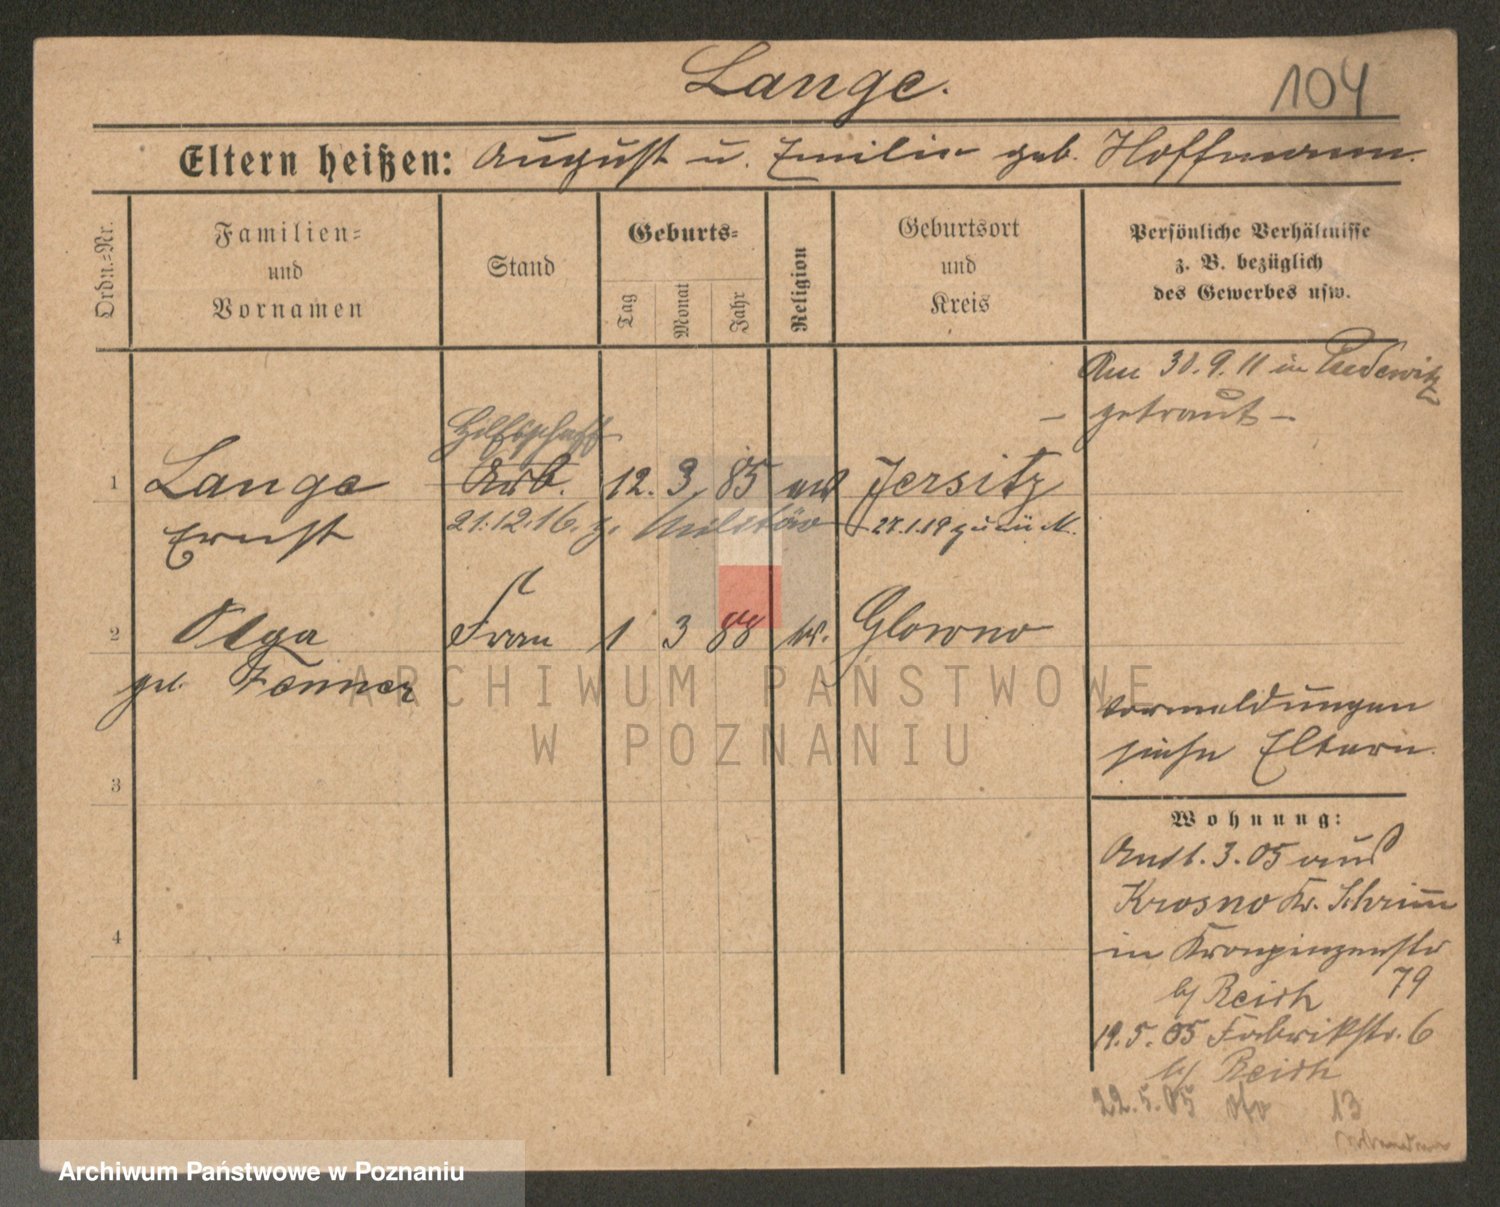 Lange.
104
Eltern heißen: August u. Emilie geb. Hoffmann.
Ordn.-Nr.
Familien-
und
Vornamen
Stand
Geburts-
Tag
Monat
Jahr
Religion
Geburtsort
und
Kreis
Persönliche Verhältnisse
z. B. bezüglich
des Gewerbes usw.
Am 30.9.11 in Pudewitz
- getraut -
1 Lange Arb. 12. 3. 85 Jersitz
Ernst 21.12.16. z. Militär 27.1.19 zurück.
2 Olga Frau 1 3 88 Glowno
geb. Fenner
Vormeldungen
siehe Eltern.
3
Wohnung:
3.05 aus
Krosno Kr. Schrimm
4
in Kronprinzenstr
79
b/ Reich
19.5.05 Fabrikstr. 6
b/ Reich
22.5.05 13
ARCHIWUM PAŃSTWOWE
W POZNANIU
Archiwum Państwowe w Poznaniu